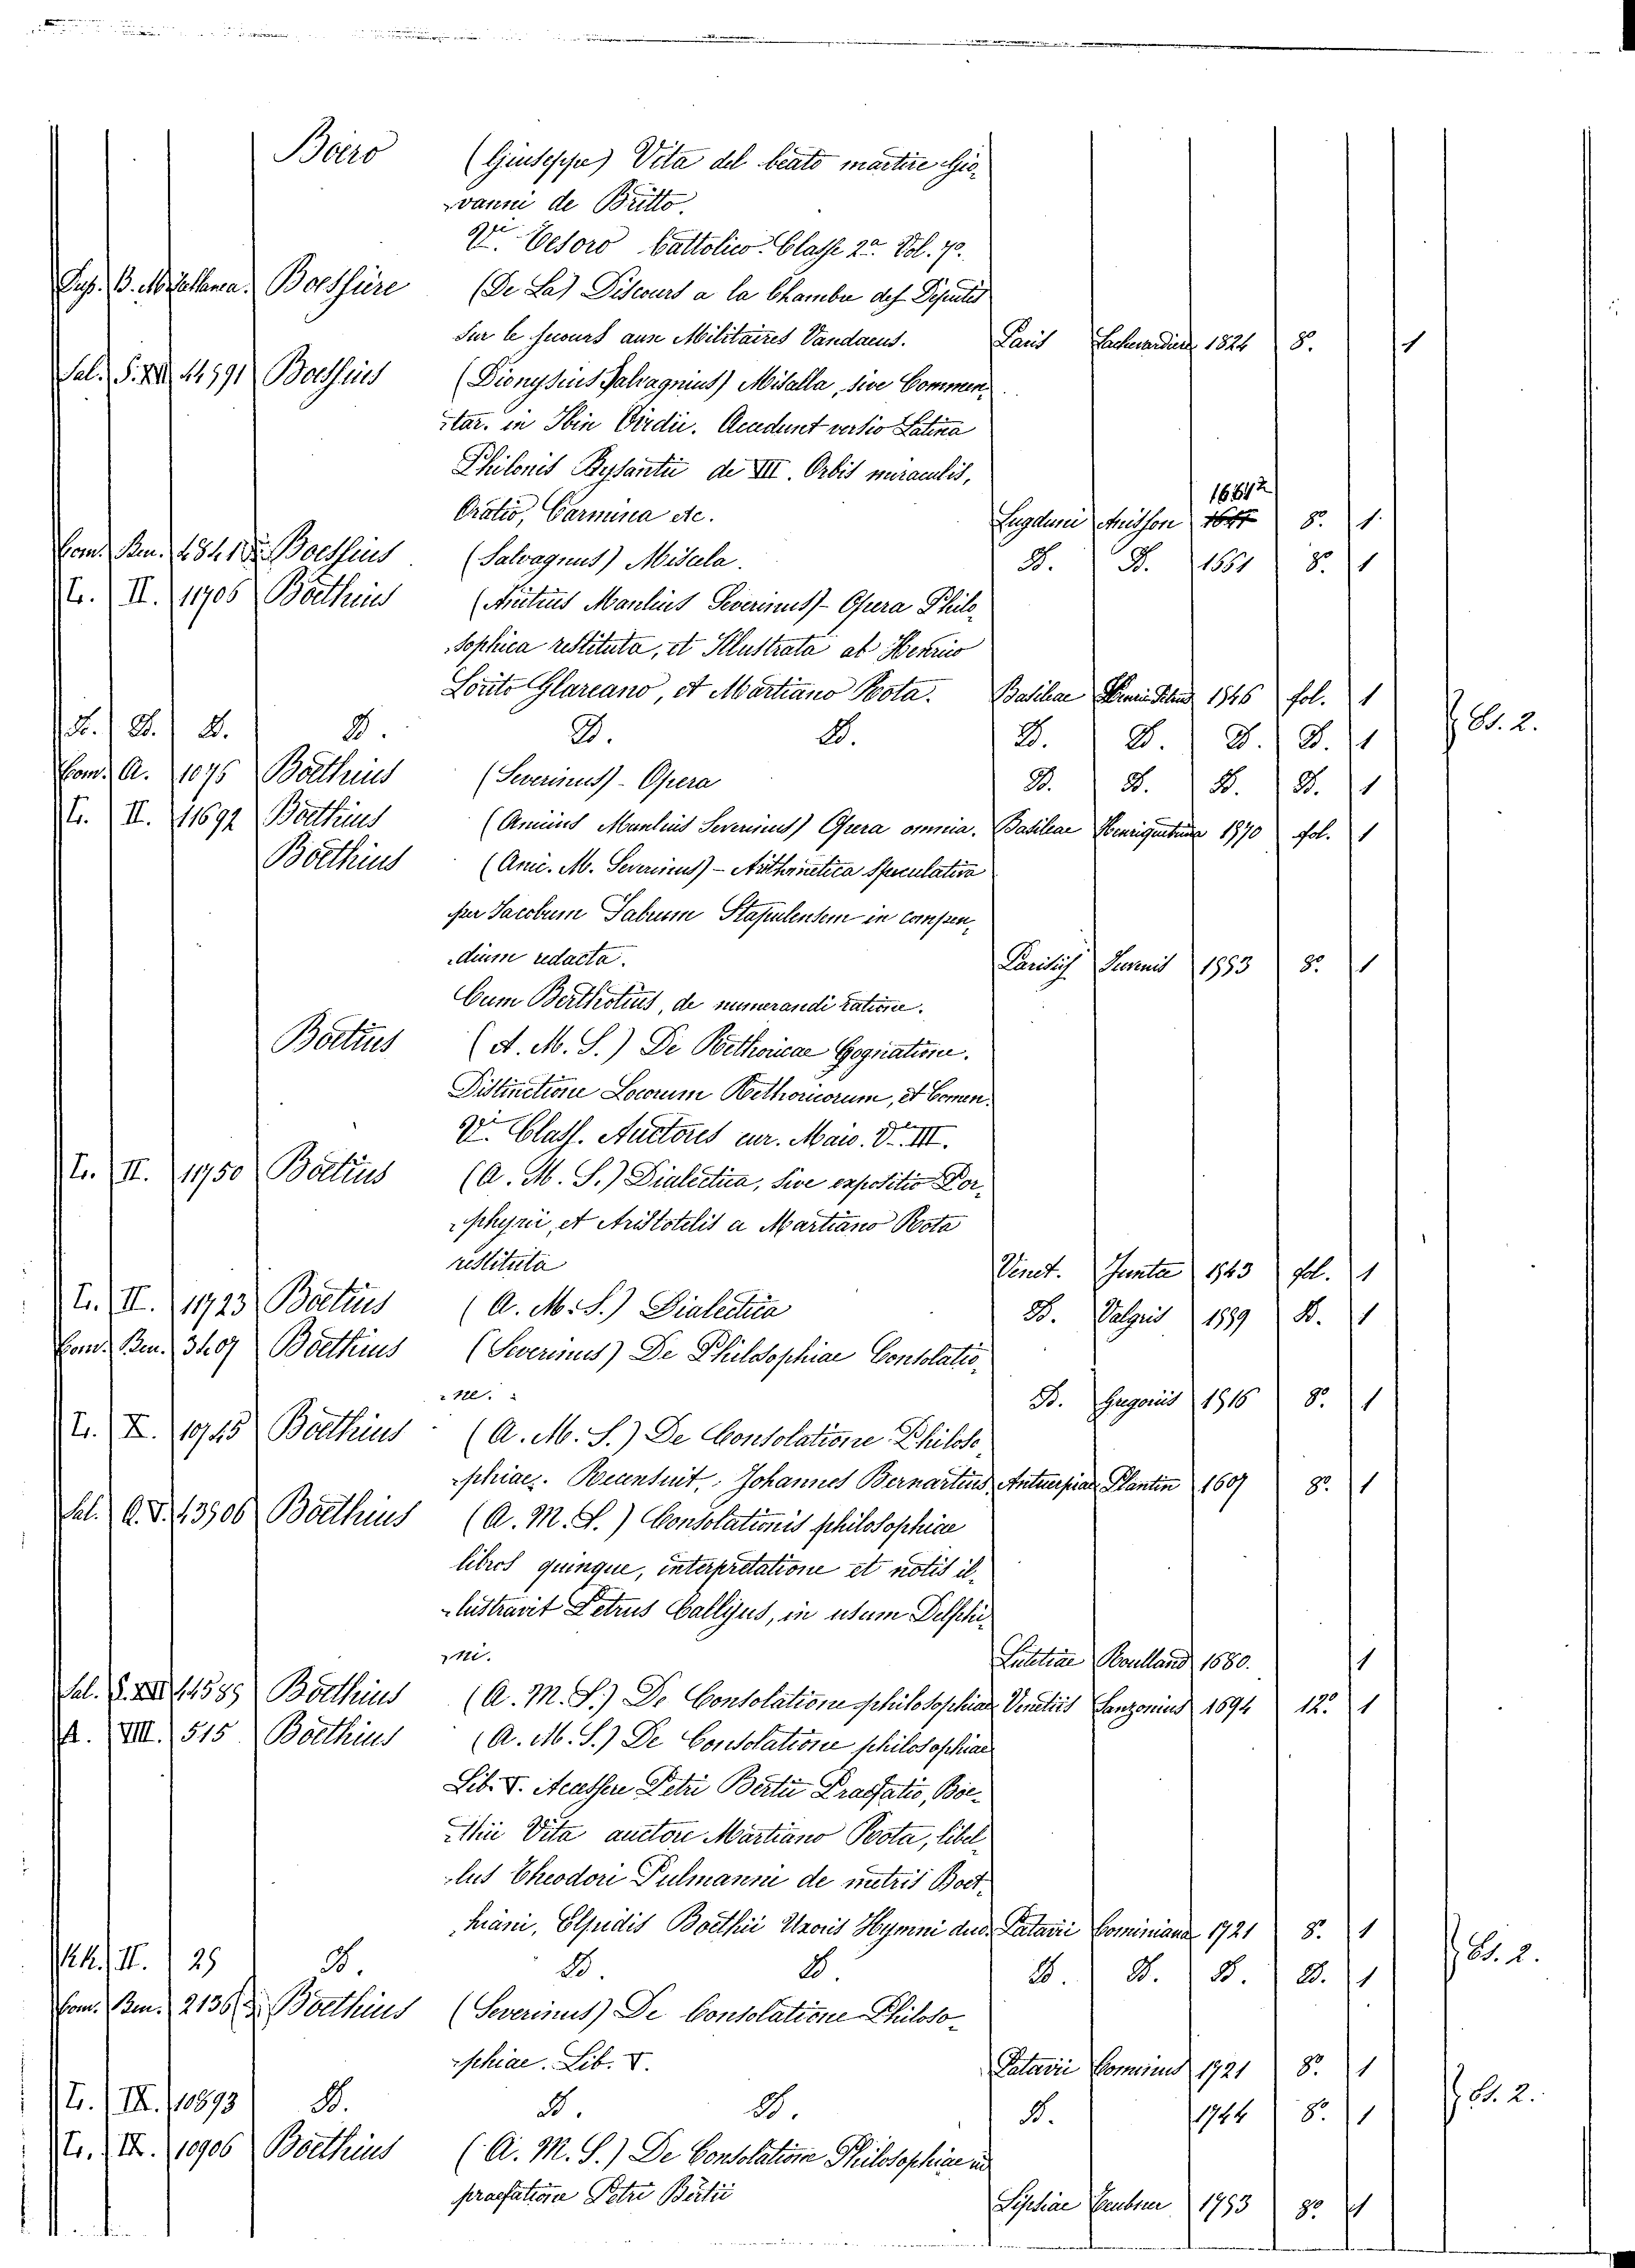 Boero (Giuseppe) Vita del beato martire Gio-
vanni de Britto.
V. Tesoro Cattolico. Classe 2a. Vol. 7o.
Sup. B. Miscellanea. Boessiere (De La) Discours a la Chambre des Députés
sur le secours aux Militaires Vandaens. Paris 1824 8. 1
Sal. S. XII. 44591 Boessius (Dionysius Salvagnius) Misalla, sive Commen-
tar. in Ibin Ovidii. Accedunt versio Latina
Philonis Bysantii de VII. Orbis miraculis,
16612
Oratio, Carmina etc. Lugduni Anisson 8o. 1.
Com. Ben. 4841 Boessius (Salvagnus) Miscela. D. D. 1661 8o. 1
Tr. II. 11706 Boethius (Anitius Manlius Severinus) - Opera Philo-
sophica restituta, et Illustrata ab Henrico
Lorito Glareano, et Martiano Rota. Basileae 1546 fol. 1
D. D. D. D. D. D. D. D. D. D. 1 Es. 2.
Com. A. 1075 Boethius (Severinus) - Opera D. D. D. D. 1
Tr. II. 11692 Boethius (Anicius Manlius Severinus) Opera omnia. Basileae Henripetrina 1570 fol. 1
Boethius (Anic. M. Severinus) - Arithmetica speculativa
per Jacobum Fabrum Stapulensem in compen-
dium redacta. Parisiis Juvenis 1553 8o. 1
Cum Berthotius, de numerandi ratione.
Boetius (A. M. S.) De Rethoricae Cognatione.
Distinctione Locorum Rethoricorum, et Comen.
V. Class. Auctores cur. Maio. V. III.
Tr. II. 11750 Boetius (A. M. S.) Dialectica, sive expositio Por-
phyrii, et Aristotelis a Martiano Rota
restituta Venet. Junta 1543 fol. 1
Tr. II. 11723 Boetius (A. M. S.) Dialectica D. Valgris 1559 D. 1
Com. Ben. 3407 Boethius (Severinus) De Philosophiae Consolatio-
ne. D. Gregoriis 1516 8o. 1
Tr. X. 10745 Boethius (A. M. S.) De Consolatione Philoso-
phiae. Recensuit, Johannes Bernartius Antuerpiae Plantin 1607 8o. 1
Sal. Q. V. 43506 Boethius (A. M. S.) Consolationis philosophiae
libros quinque, interpretatione et notis il-
lustravit Petrus Callyus, in usum Delphi-
ni. Lutetiae Roulland 1680. 1
Sal. S. XII. 44585 Boethius (A. M. S.) De Consolatione philosophiae Venetiis Lanzonius 1694 12o. 1
A. VIII. 515 Boethius (A. M. S.) De Consolatione philosophiae
Lib. V. Acassere Petri Bertii Praefatio, Boe-
thii Vita auctore Martiano Rota, libel-
lus Theodori Pulmanni de metris Boet-
hiani, Elpidis Boethii Uxoris Hymni duo. Patavii Cominiana 1721 8o. 1
Kk. II. 25 D. D. D. D. D. D. D. 1 Es. 2.
Com. Ben. 2136 Boethius (Severinus) De Consolatione Philoso-
phiae. Lib. V. Patavii Cominus 1721 8o. 1
Tr. IX. 10893 D. D. D. D. 1744 8o. 1 Es. 2.
Tr. IX. 10906 Boethius (A. M. S.) De Consolatione Philosophiae in
praefatione Petri Bertii Lipsiae 1753 8o 1